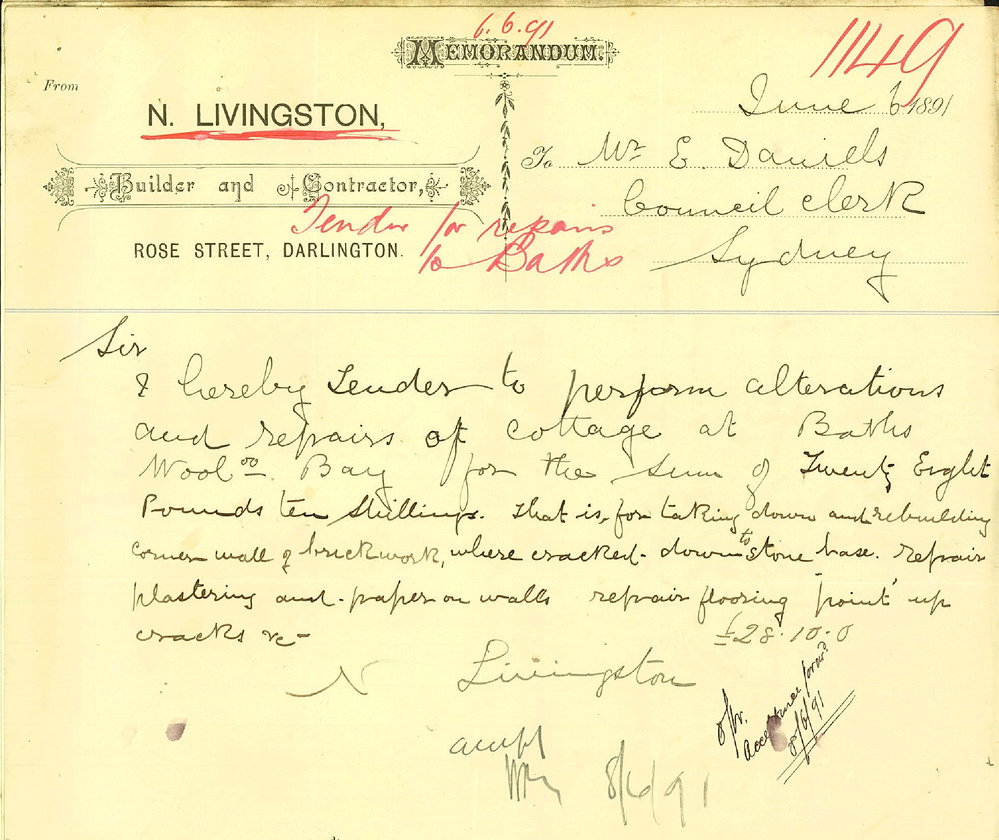 6.6.91
MEMORANDUM.
1149
From
June 6 1891
N. LIVINGSTON,
To Mr E. Daniels
Builder and Contractor,
Council Clerk
Tender for repairs
to Baths
ROSE STREET, DARLINGTON.
Sydney
Sir
I hereby Tender to perform alterations
and repairs of cottage at Baths
Wool oo Bay for the sum of Twenty Eight
Pounds ten shillings. That is, for taking down and rebuilding
corner wall of brickwork, where cracked - down to stone base. repair
plastering and - paper on walls repair flooring 'point' up
cracks &c -
£28.10.0
N Livingston
Acceptance forwd
8/6/91
8/6/91